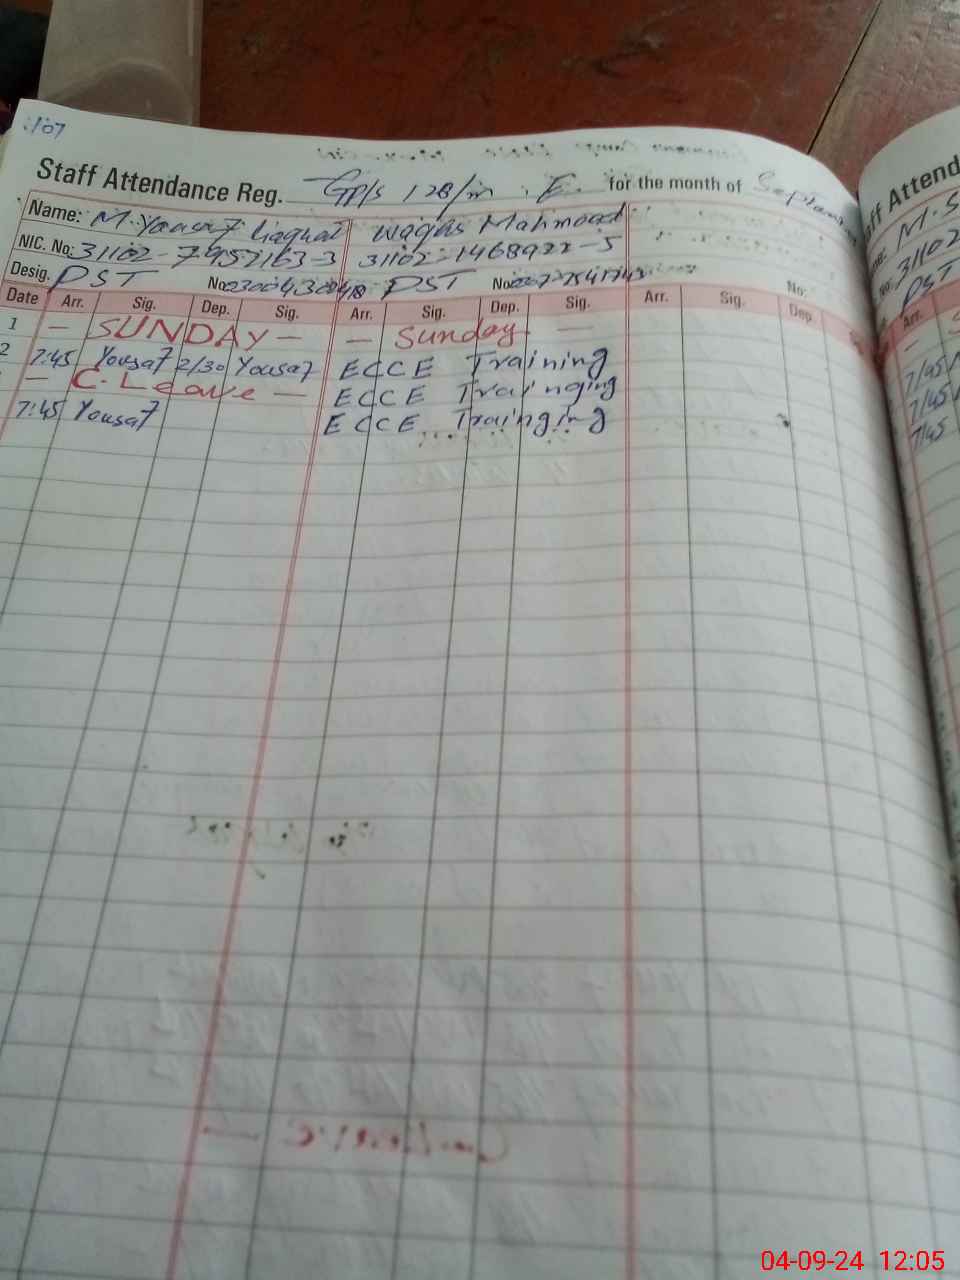 Staff Attendance Reg. GP/s 128/m . E. for the month of September
Name: M. Yousaf Liaqhat Waqas Mahmood
NIC. No: 31102-7957163-3 31102-1468922-5
Desig. PST No: PST No: No:
Date Arr. Sig. Dep. Sig. Arr. Sig. Dep. Sig. Arr. Sig. Dep.
1 — SUNDAY — — Sunday —
2 7:45 Yousaf 2/30 Yousaf ECCE Training
— C. Leave — ECCE Trainging
7:45 Yousaf ECCE Trainging
Attend
M. S
31102
PST
Arr.
7/45
7/45
7/45
04-09-24 12:05